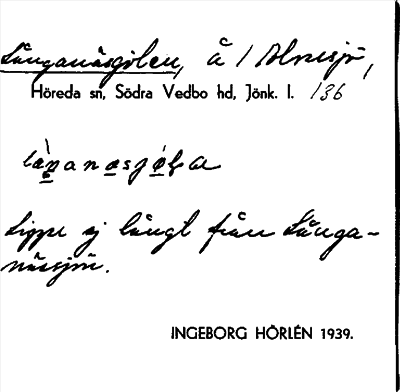 Långanäsgölen, å 1 Alnesjö,
Höreda sn, Södra Vedbo hd, Jönk. l. 136
Ligger ej långt från Långa-
nässjön.
INGEBORG HÖRLÉN 1939.